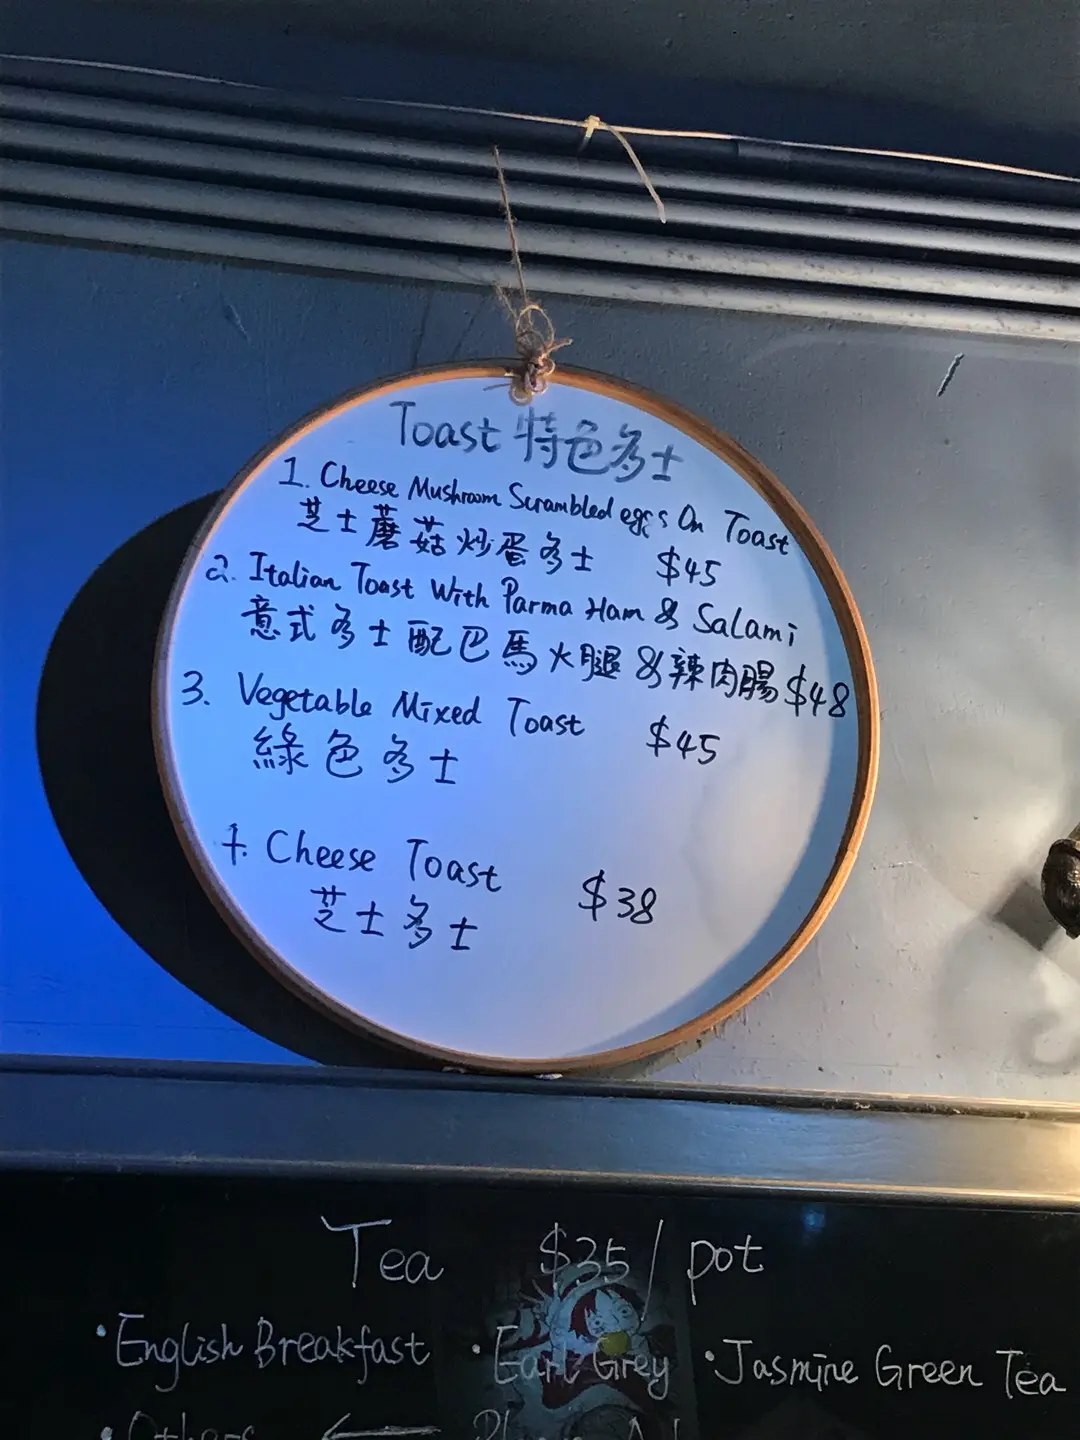 Toast 特色多士
1. Cheese Mushroom Scrambled eggs On Toast
芝士蘑菇炒蛋多士 $45
2. Italian Toast With Parma Ham & Salami
意式多士配巴馬火腿 & 辣肉腸 $48
3. Vegetable Mixed Toast $45
綠色多士
4. Cheese Toast $38
芝士多士
Tea $35 / pot
• English Breakfast • Earl Grey • Jasmine Green Tea
• Others ←